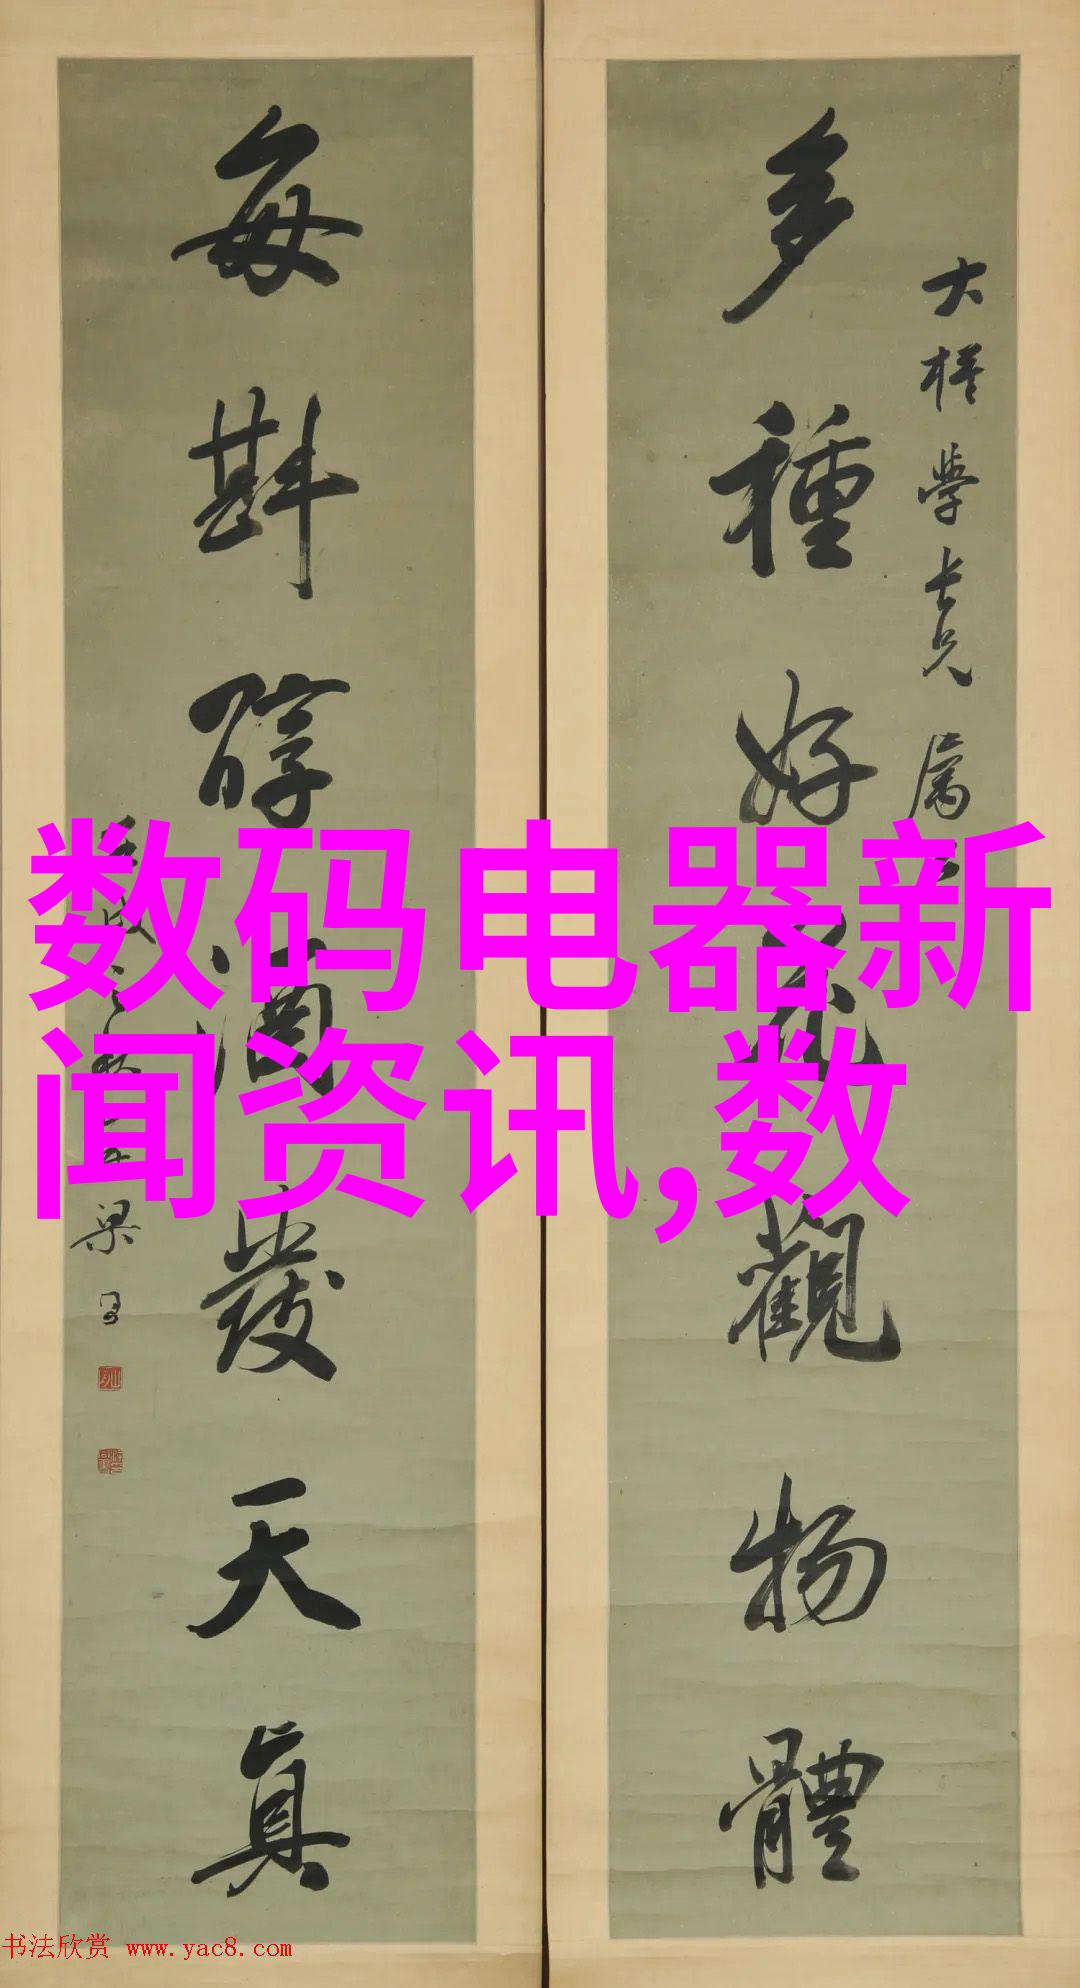 多種好花觀物體
大樣學長兄屬
每斟醇酒發天真
梁
数码电器新
闻资讯,数
书法欣赏 www.yac8.com